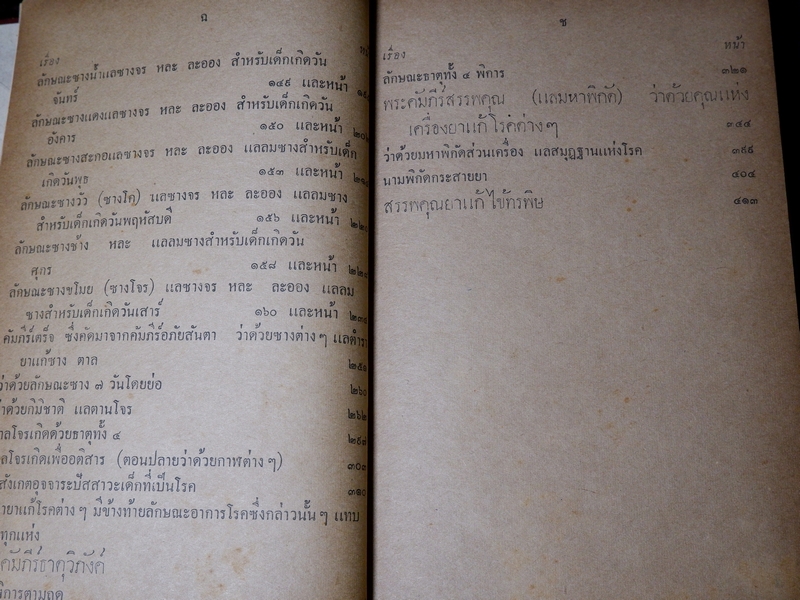 ฉ
เรื่อง
ลักษณะซางน้ำแลซางจร หละ ละออง สำหรับเด็กเกิดวัน
จันทร์ ๑๔๙ และหน้า
ลักษณะซางแดงแลซางจร หละ ละออง สำหรับเด็กเกิดวัน
อังคาร ๑๕๐ และหน้า
ลักษณะซางสะกอแลซางจร หละ ละออง แลลมซางสำหรับเด็ก
เกิดวันพุธ ๑๕๓ และหน้า
ลักษณะซางวัว (ซางโค) แลซางจร หละ ละออง แลลมซาง
สำหรับเด็กเกิดวันพฤหัสบดี ๑๕๖ และหน้า
ลักษณะซางช้าง หละ แลลมซางสำหรับเด็กเกิดวัน
ศุกร ๑๕๘ และหน้า
ลักษณะซางขโมย (ซางโจร) แลซางจร หละ ละออง แลลม
ซางสำหรับเด็กเกิดวันเสาร์ ๑๖๐ และหน้า
คัมภีร์ตรีจ ซึ่งคัดมาจากคัมภีร์อภัยสันตา ว่าด้วยซางต่างๆ แลตำรา
ยาแก้ซาง ตาล ๒๕๑
ว่าด้วยลักษณะซาง ๗ วันโดยย่อ ๒๖๐
ว่าด้วยกิมิชาติ แลตานโจร ๒๖๒
ลโจรเกิดด้วยธาตุทั้ง ๔ ๒๙๗
ลโจรเกิดเพื่ออติสาร (ตอนปลายว่าด้วยกาฬต่างๆ) ๓๐๓
สังเกตอุจจาระปัสสาวะเด็กที่เป็นโรค ๓๑๐
ายาแก้โรคต่างๆ มีข้างท้ายลักษณะอาการโรคซึ่งกล่าวนั้นๆ แทบ
ทุกแห่ง
คัมภีร์ธาตุวิภังค์
พิการตามฤดู
ช
เรื่อง หน้า
ลักษณะธาตุทั้ง ๔ พิการ ๓๒๑
พระคัมภีร์สรรพคุณ (แลมหาพิกัด) ว่าด้วยคุณแห่ง
เครื่องยาแก้โรคต่างๆ ๓๔๔
ว่าด้วยมหาพิกัดส่วนเครื่อง แลสมุฏฐานแห่งโรค ๓๙๙
นามพิกัดกระสายยา ๔๐๔
สรรพคุณยาแก้ไข้ทรพิษ ๔๑๓